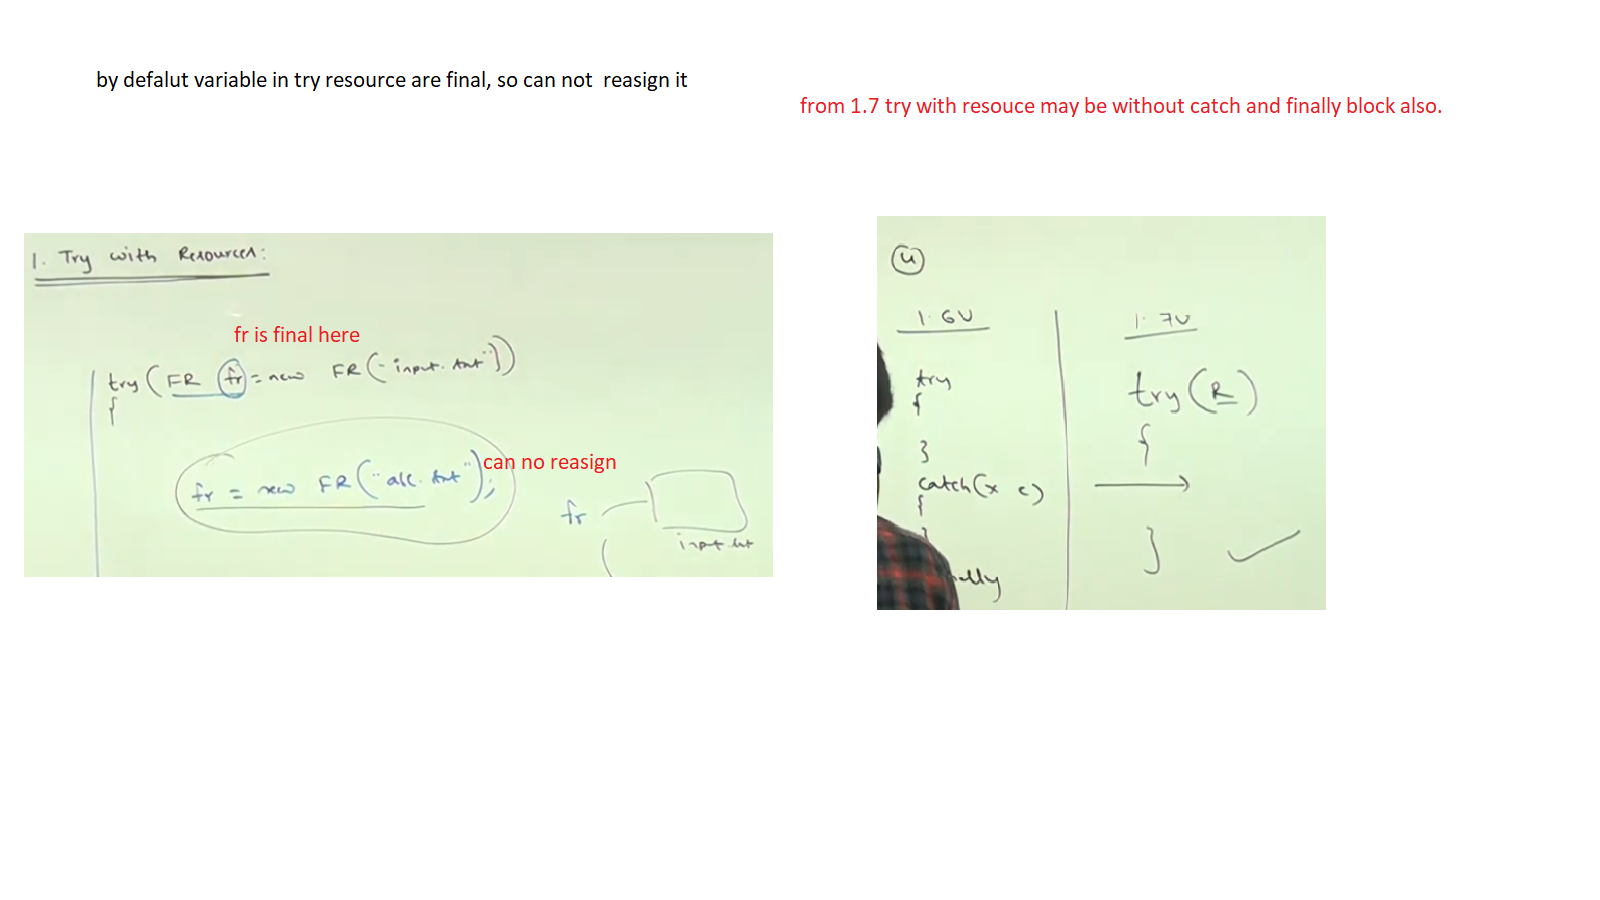 by defalut variable in try resource are final, so can not  reasign it
from 1.7 try with resouce may be without catch and finally block also.
1. Try with Resources:
fr is final here
try (FR fr = new FR("input.txt"))
{
fr = new FR("abc.txt");
can no reasign
fr
input.txt
4
1.6V
try
{
}
catch(x e)
{
}
1.7V
try(R)
{
}